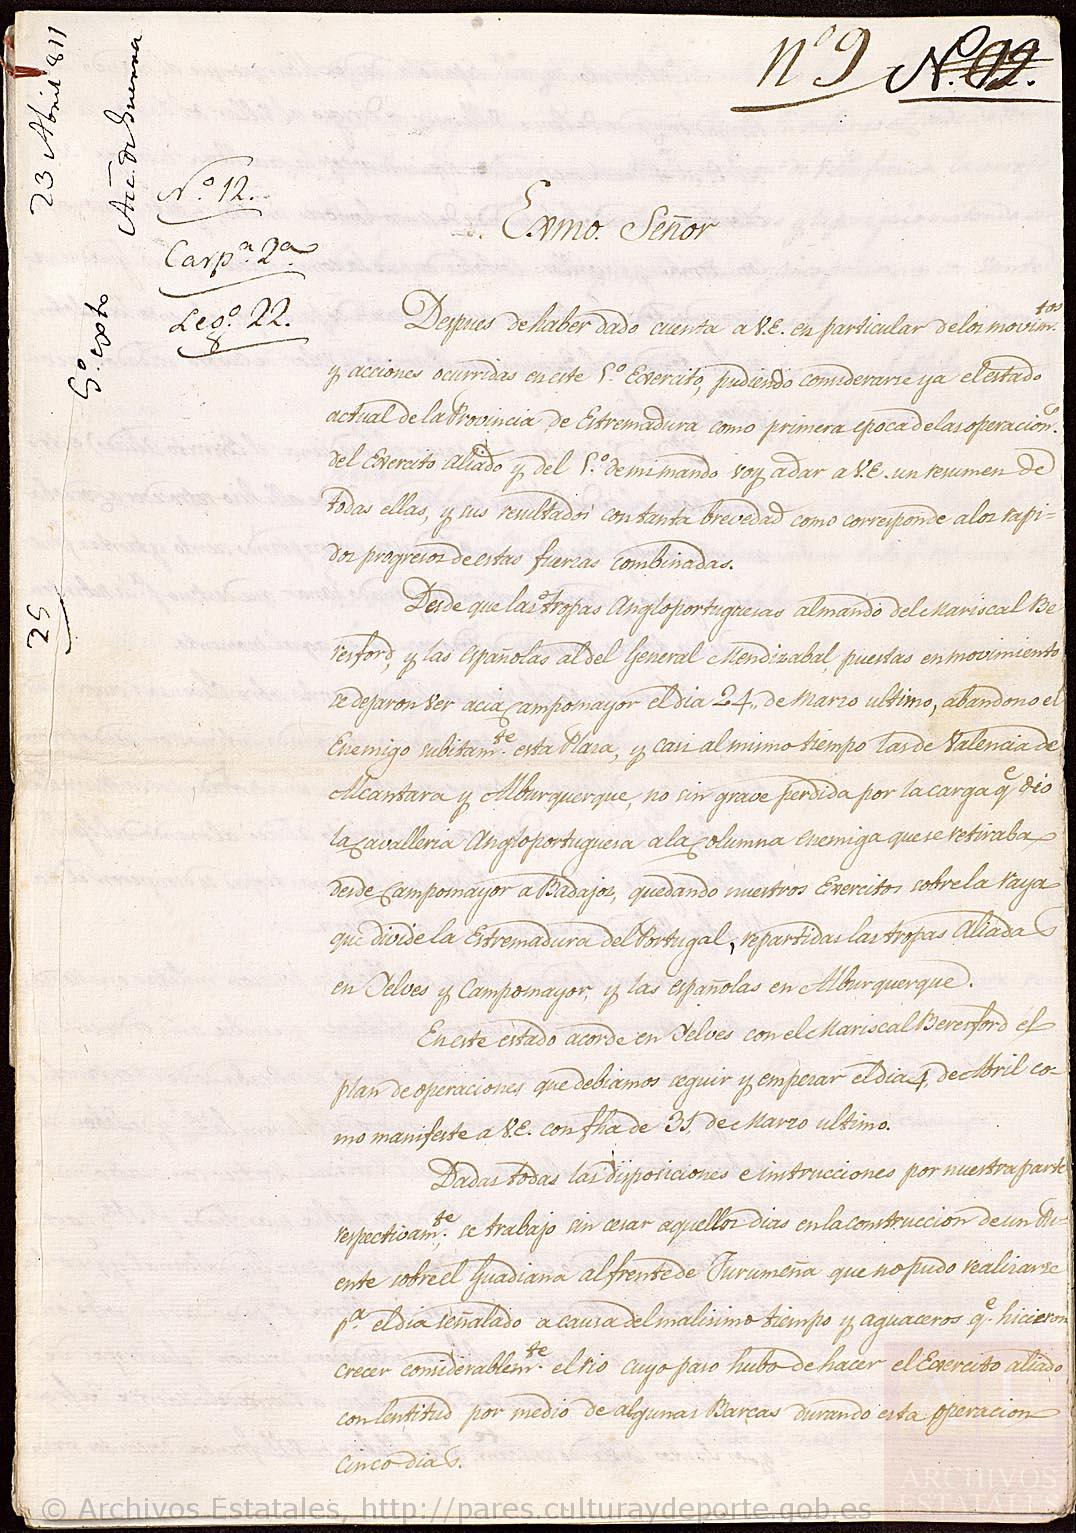 nº 9 Nº 12.
23 Abril 811
Acc.n de Guerra
5º exto
25
Nº 12.
Carp.a 2.a
Leg.o 22.
Exmo. Señor
Despues de haber dado cuenta a V.E. en particular de los movim.tos
y acciones ocurridas en este 5.º Exercito, pudiendo considerarse ya el estado
actual de la Provincia de Estremadura como primera epoca de las operacion.s
del Exercito Aliado y del 5.º de mi mando voy a dar a V.E. un resumen de
todas ellas, y sus resultados con tanta brevedad como corresponde a los rapi-
dos progresos de estas fuerzas combinadas.
Desde que las tropas Angloportuguesas al mando del Mariscal Be-
resford, y las españolas al del General Mendizabal, puestas en movimiento
se dejaron ver acia Campomayor el dia 24,, de Marzo ultimo, abandono el
Enemigo subitam.te esta Plaza, y casi al mismo tiempo las de Valencia de
Alcantara y Alburquerque, no sin grave perdida por la carga q.e dio
la Cavalleria Angloportuguesa a la Columna enemiga que se retiraba
desde Campomayor a Badajoz, quedando nuestros Exercitos sobre la raya
que divide la Estremadura del Portugal, repartidas las tropas Aliadas
en Yelves y Campomayor, y las españolas en Alburquerque.
En este estado acorde en Yelves con el Mariscal Beresford el
plan de operaciones que debiamos seguir y empezar el dia 4, de Abril co-
mo manifeste a V.E. con fha de 31, de Marzo ultimo.
Dadas todas las disposiciones e instrucciones por nuestra parte
respectivam.te, se trabajo sin cesar aquellos dias en la construccion de un Pu-
ente sobre el Guadiana al frente de Jurumeña que no pudo realizarse
p.a el dia señalado a causa del malisimo tiempo y aguaceros q.e hicieron
crecer considerablem.te el rio cuyo paso hubo de hacer el Exercito aliado
con lentitud por medio de algunas Barcas durando esta operacion
cinco dias.
ARCHIVOS
ESTATALES
© Archivos Estatales, http://pares.culturaydeporte.gob.es